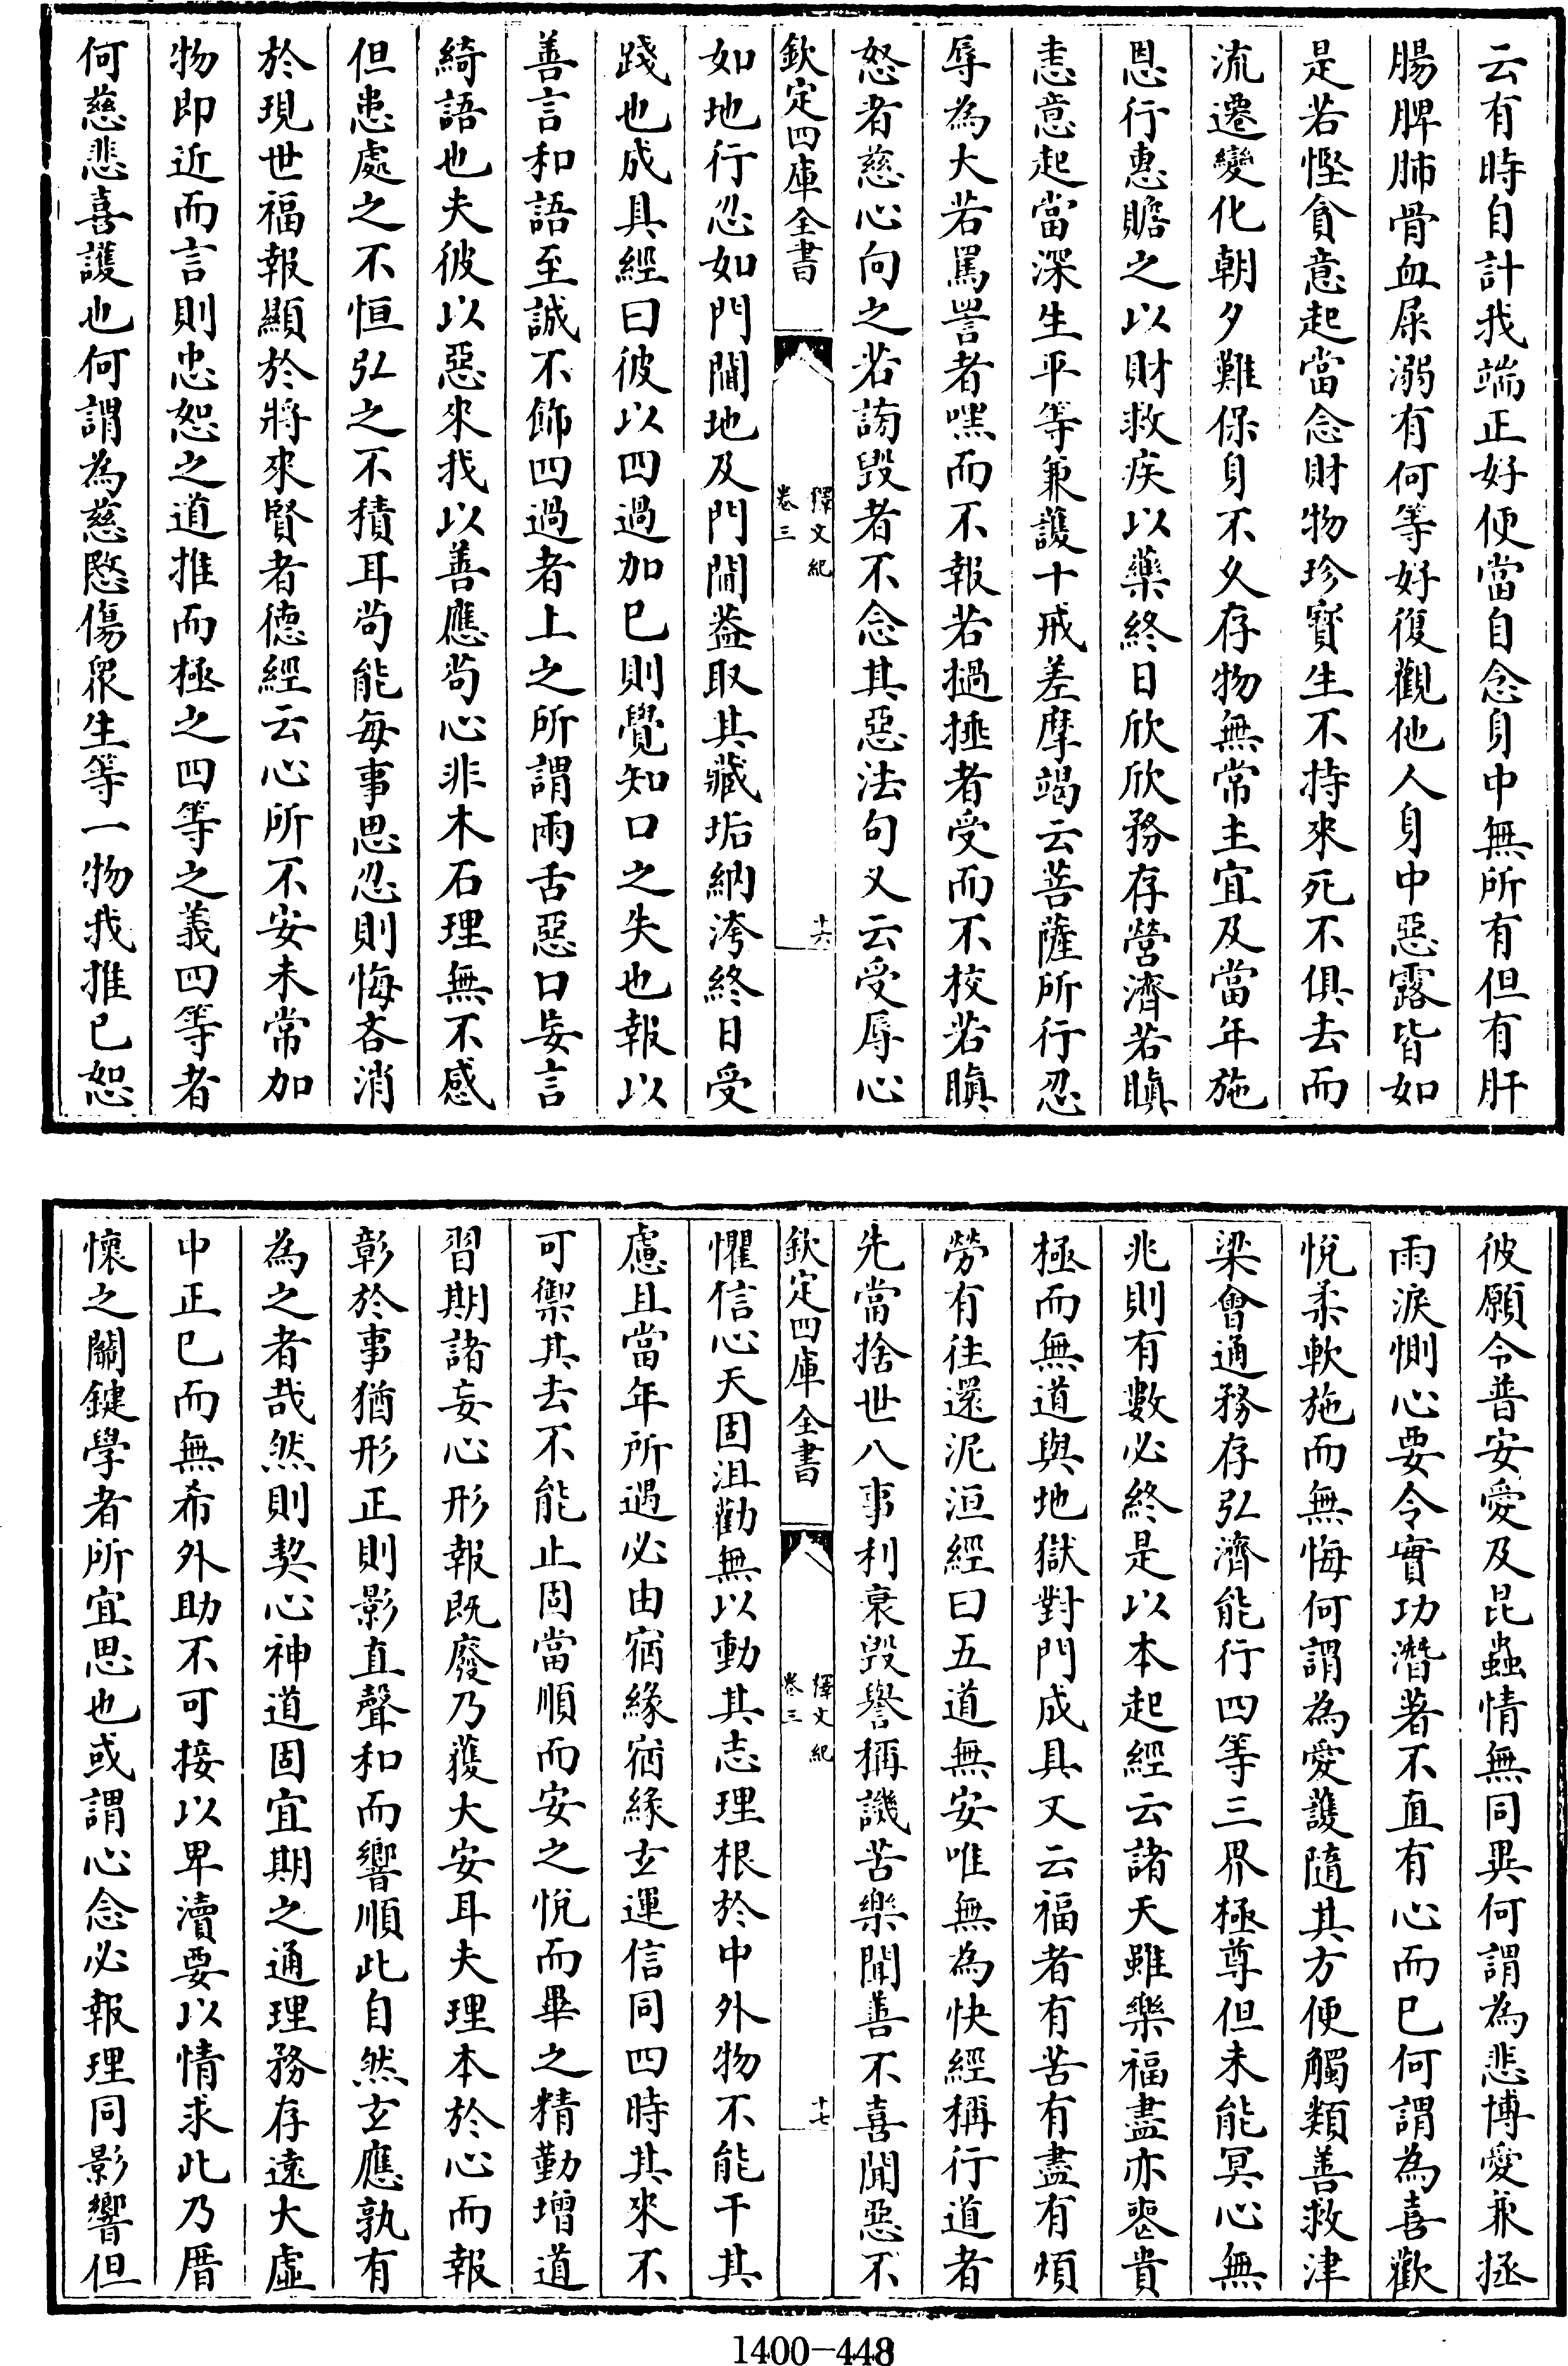 云有時自計我端正好便當自念身中無所有但有肝
腸脾肺骨血屎溺有何等好復觀他人身中惡露皆如
是若慳貪意起當念財物珍寳生不持來死不俱去而
流遷變化朝夕難保身不久存物無常主宜及當年施
恩行惠贍之以財救疾以藥終日欣欣務存營濟若瞋
恚意起當深生平等兼護十戒差摩竭云菩薩所行忍
辱為大若罵詈者嘿而不報若撾捶者受而不校若瞋
怒者慈心向之若謗毀者不念其惡法句又云受辱心
欽定四庫全書
釋文紀
卷三
十六
如地行忍如門閫地及門閫葢取其藏垢納洿終日受
踐也成具經曰彼以四過加已則覺知口之失也報以
善言和語至誠不飾四過者上之所謂兩舌惡口妄言
綺語也夫彼以惡來我以善應茍心非木石理無不感
但患處之不恒弘之不積耳茍能每事思忍則悔吝消
於現世福報顯於將來賢者德經云心所不安未常加
物即近而言則忠恕之道推而極之四等之義四等者
何慈悲喜護也何謂為慈愍傷衆生等一物我推已恕
彼願令普安愛及昆蟲情無同異何謂為悲博愛兼拯
雨淚惻心要令實功潛著不直有心而已何謂為喜歡
悅柔軟施而無悔何謂為愛護隨其方便觸類善救津
梁會通務存弘濟能行四等三界極尊但未能冥心無
兆則有數必終是以本起經云諸天雖樂福盡亦喪貴
極而無道與地獄對門成具又云福者有苦有盡有煩
勞有往還泥洹經曰五道無安唯無為快經稱行道者
先當捨世八事利衰毀譽稱譏苦樂聞善不喜聞惡不
欽定四庫全書
釋文紀
卷三
十七
懼信心天固沮勸無以動其志理根於中外物不能干其
慮且當年所遇必由宿緣宿緣玄運信同四時其來不
可禦其去不能止固當順而安之悅而畢之精勤增道
習期諸妄心形報既廢乃獲大安耳夫理本於心而報
彰於事猶形正則影直聲和而響順此自然玄應孰有
為之者哉然則契心神道固宜期之通理務存遠大虛
中正已而無希外助不可接以卑瀆要以情求此乃厝
懷之關鍵學者所宜思也或謂心念必報理同影響但
1400-448